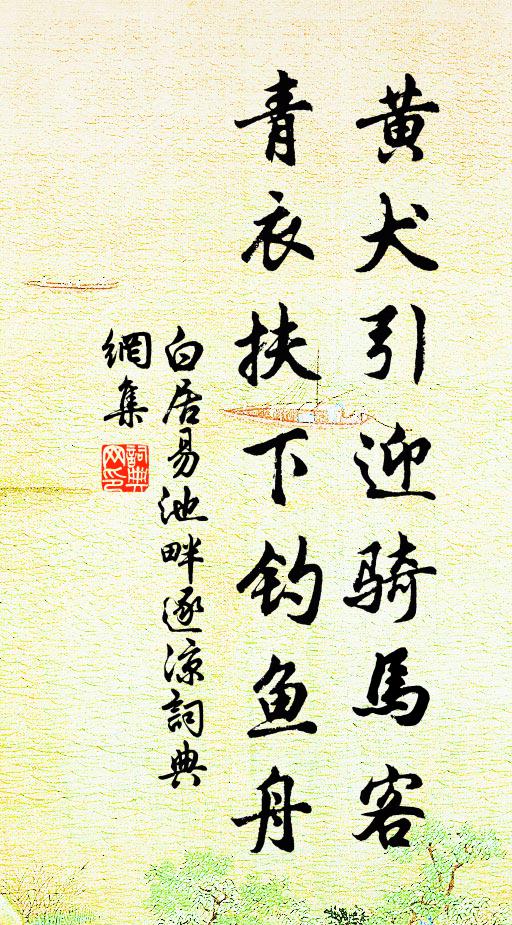 黄犬引迎骑馬客
青衣扶下钓鱼舟
白居易池畔逐涼詞典
網集
詞典
网印